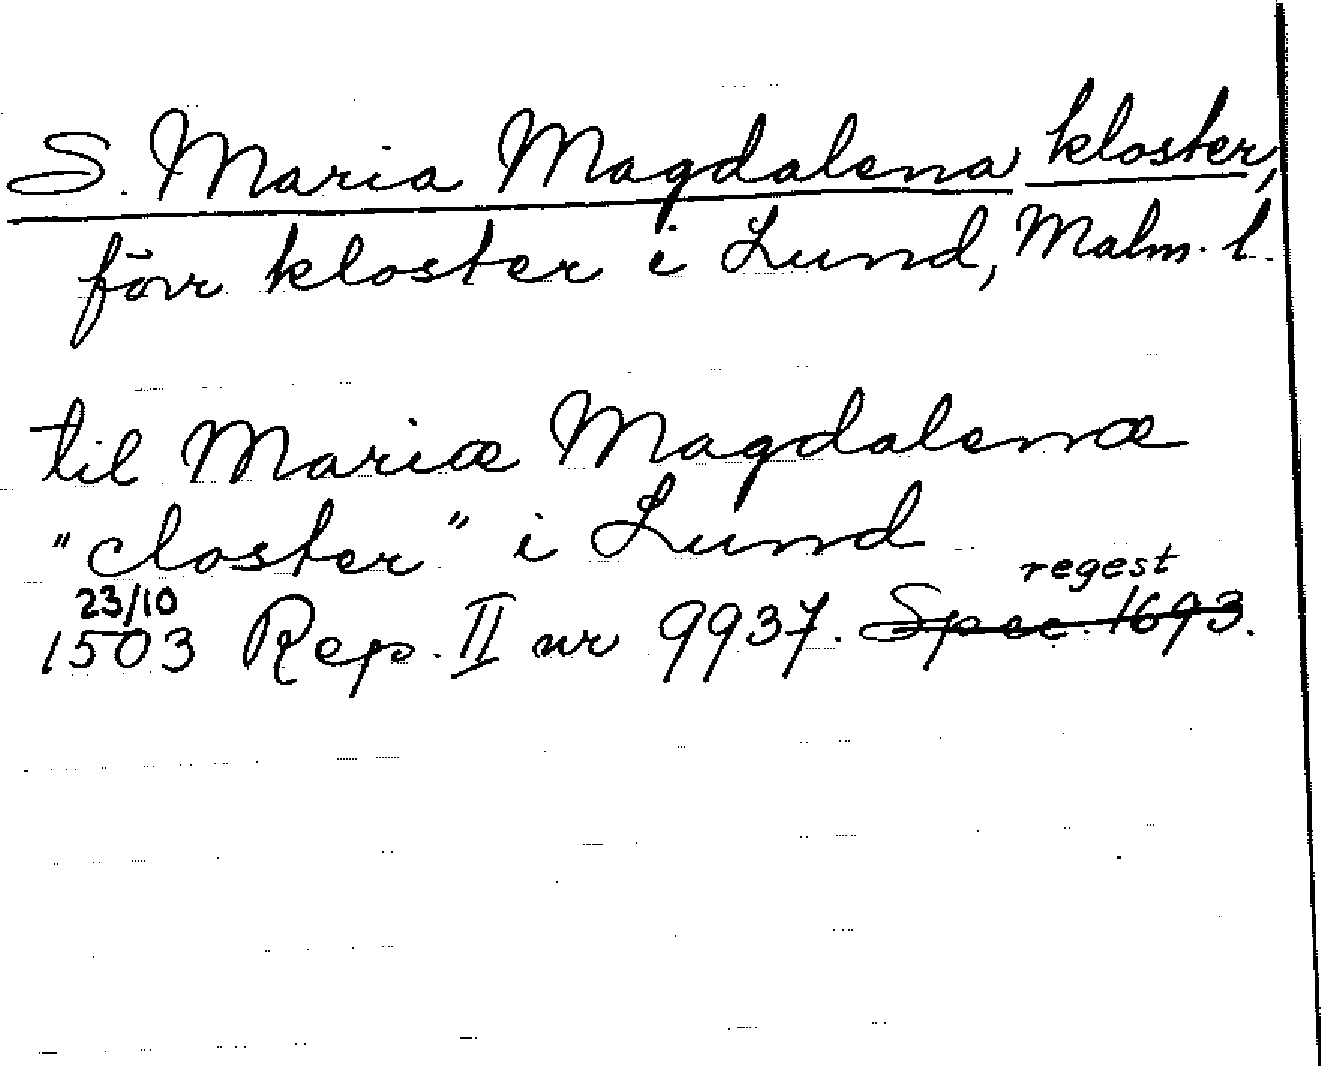 S. Maria Magdalena kloster,
förr kloster i Lund, Malm. l.
til Mariæ Magdalenæ
"closter" i Lund
regest
23/10
1503 Rep. II nr 9937. Spec. 1693.